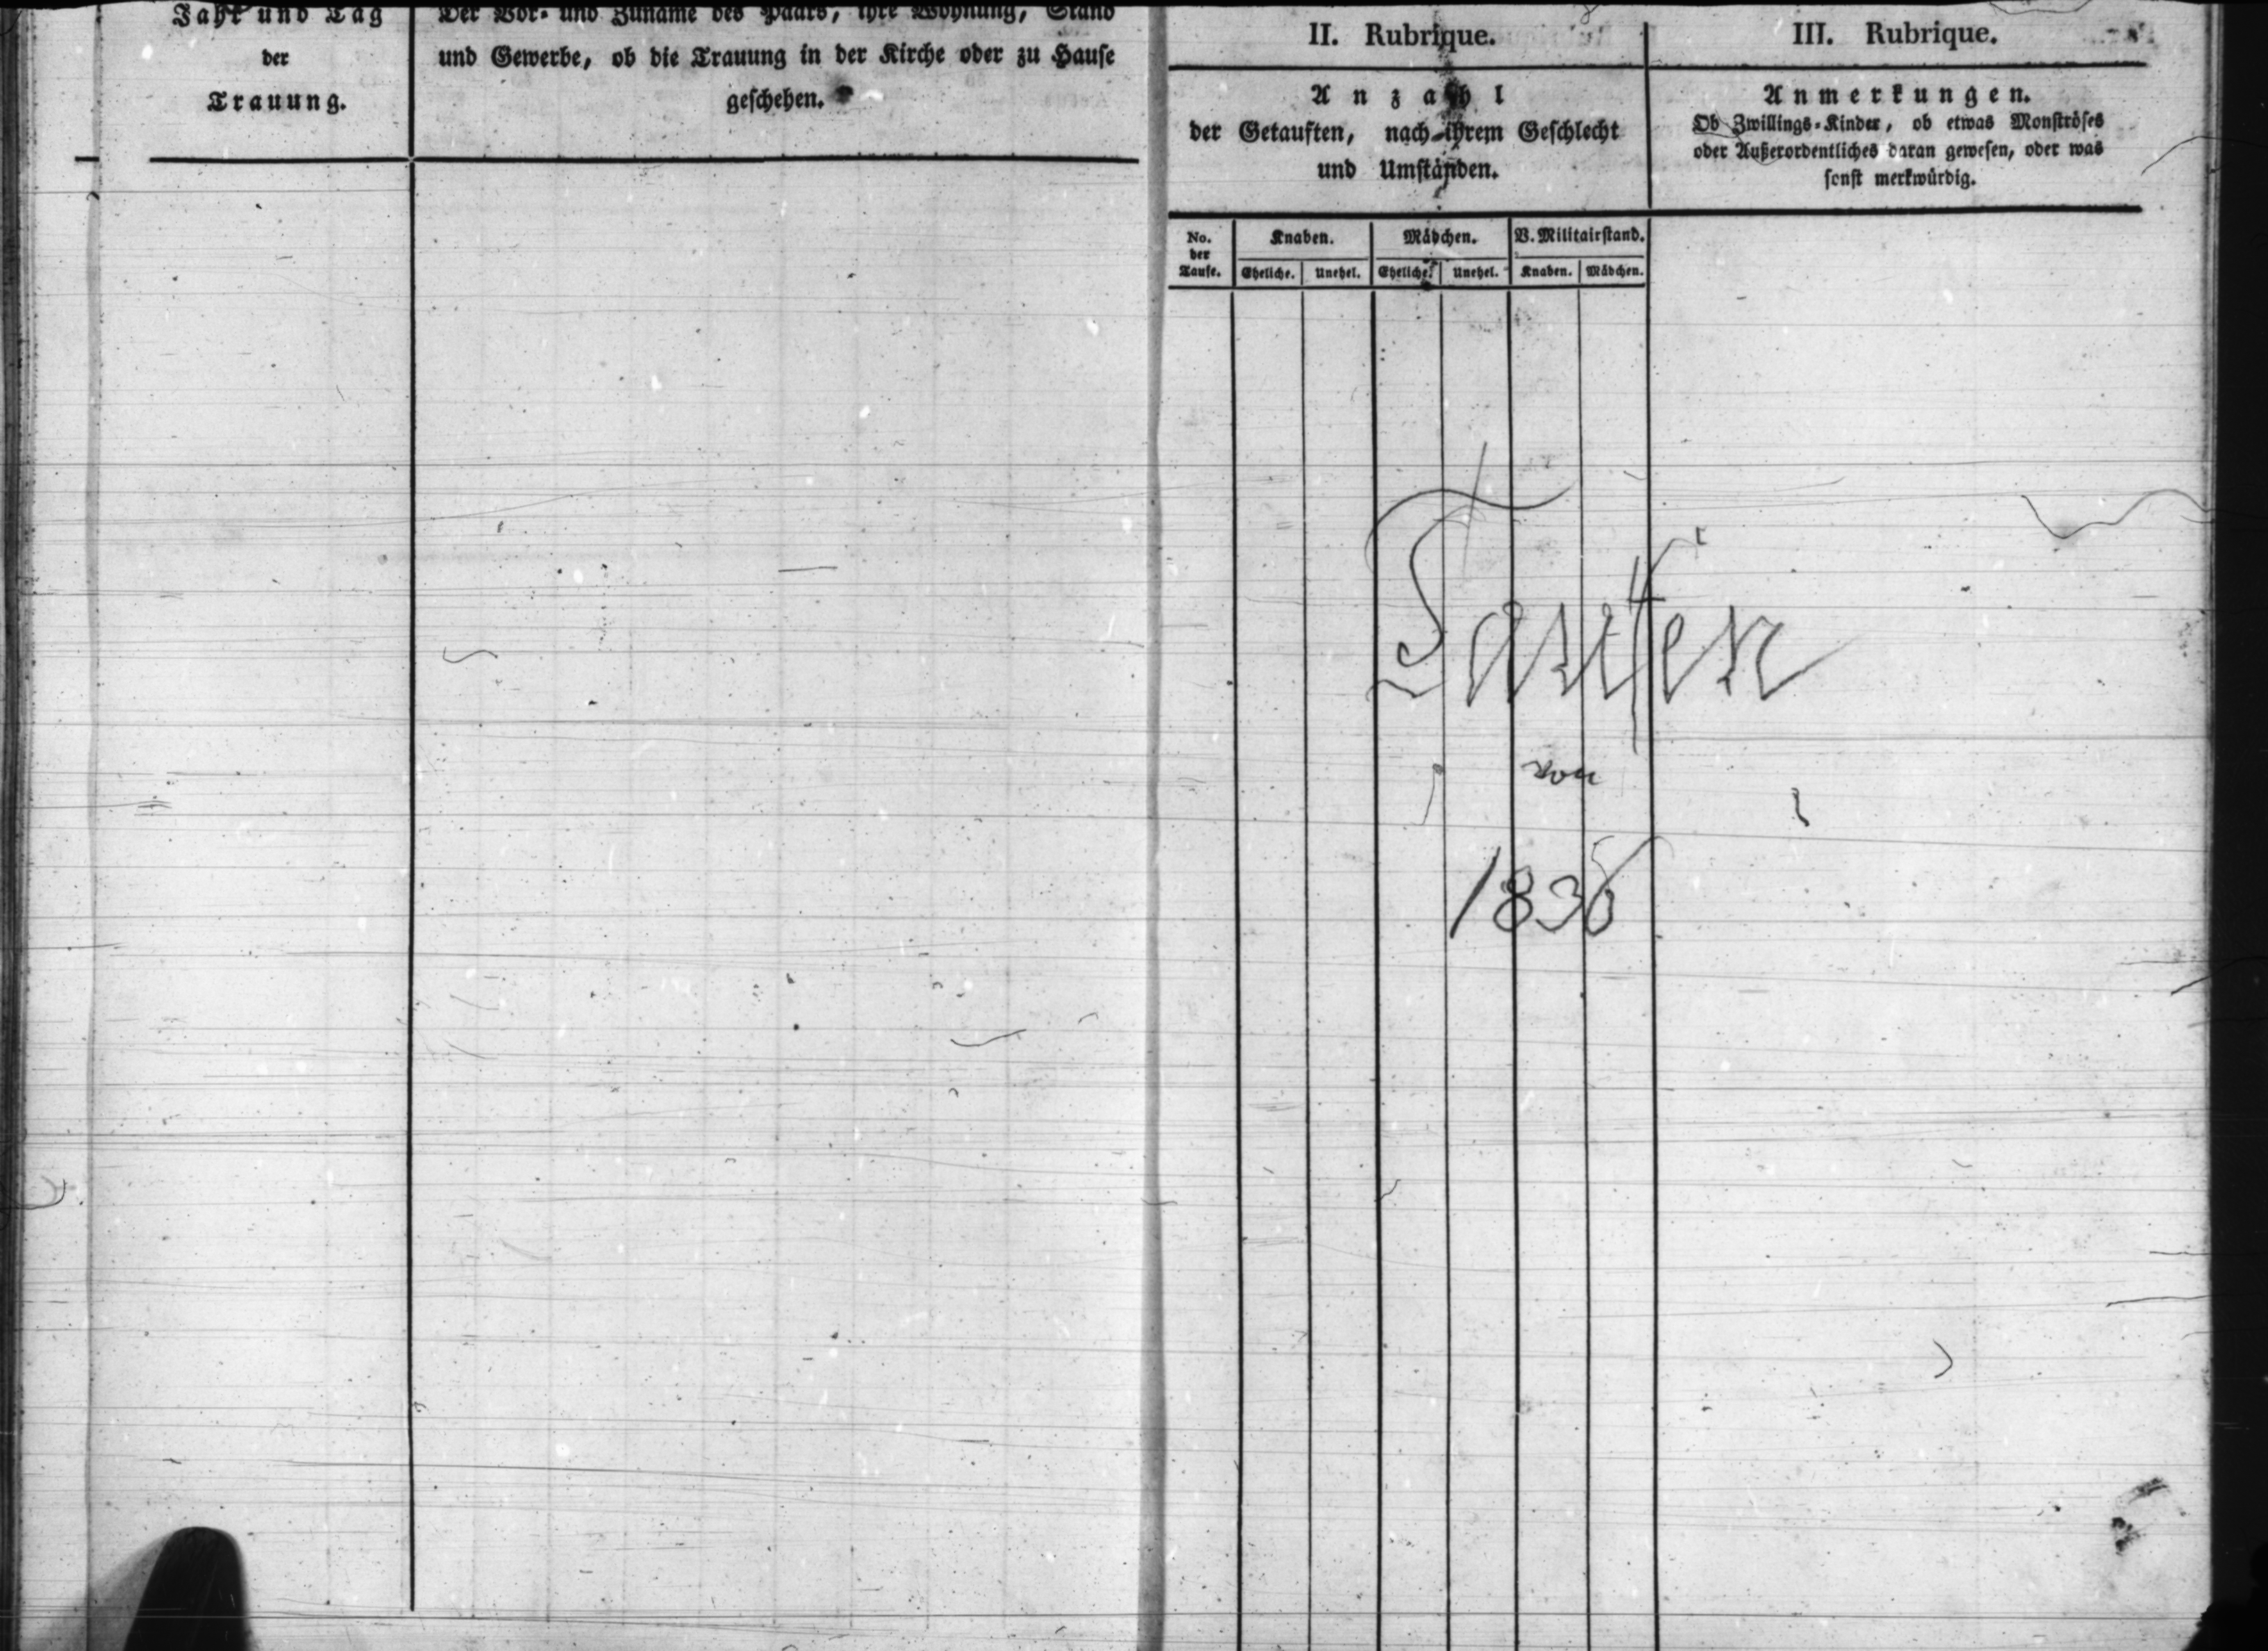 Jahr und Tag
der
Trauung.
Der Vor- und Zuname des Paars, ihre Wohnung, Stand
und Gewerbe, ob die Trauung in der Kirche oder zu Hause
geschehen.
II. Rubrique.
Anzahl
der Getauften, nach ihrem Geschlecht
und Umständen.
No.
der
Taufe.
Knaben.
Mädchen.
V. Militairstand.
Eheliche.
Unehel.
Eheliche.
Unehel.
Knaben.
Mädchen.
III. Rubrique.
Anmerkungen.
Ob Zwillings-Kinder, ob etwas Monströses
oder Außerordentliches daran gewesen, oder was
sonst merkwürdig.
Taufen
von
1836